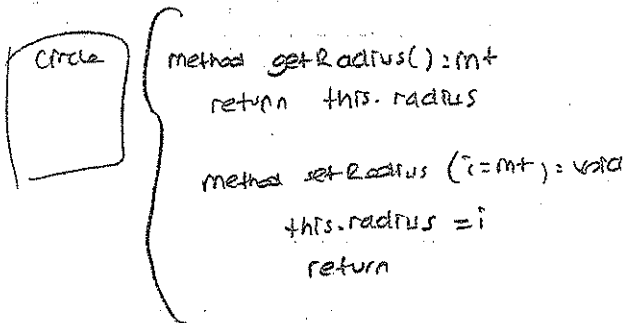 circle
method getRadius():int
return this.radius
method setRadius (i=int):void
this.radius = i
return